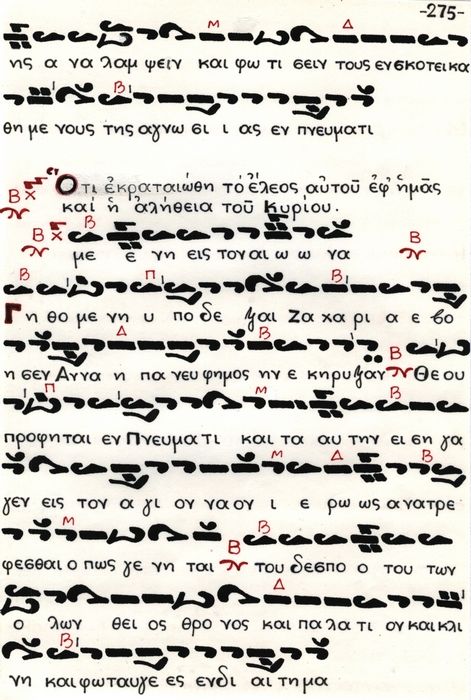 -275-
Μ Δ
ης α να λαμ ψειν και φω τι σειν τους ενσκοτεικα
Β
θη με νους της αγνω σι ι ας εν πνευματι
Β Ὅτι ἐκραταιώθη τό ἔλεος αὐτοῦ ἐφ' ἡμᾶς
καί ἡ ἀλήθεια τοῦ Κυρίου.
Β Β Β
με ε νη εις τον αι ω ω να
Β Π Β
Γηθο με νη υ πο δε ξαι Ζα χα ρι α ε βο
Δ Β Β
η σεν Αννα η παν ευ φημος ην ε κηρυξαν Θε ου
Π Μ Β
προφηται εν Πνευμα τι και τα αυ την ει ση γα
Μ Δ Β
γεν εις τον α γι ον ναον ι ε ρω ως ανατρε
Μ Β Β
φεσθαι ο πως γε νη ται του δεσπο ο του των
Δ
ο λων θει ος θρο νος και παλα τι ον και κλι
Β
νη και φωταυγε ες ενδι αι τη μα